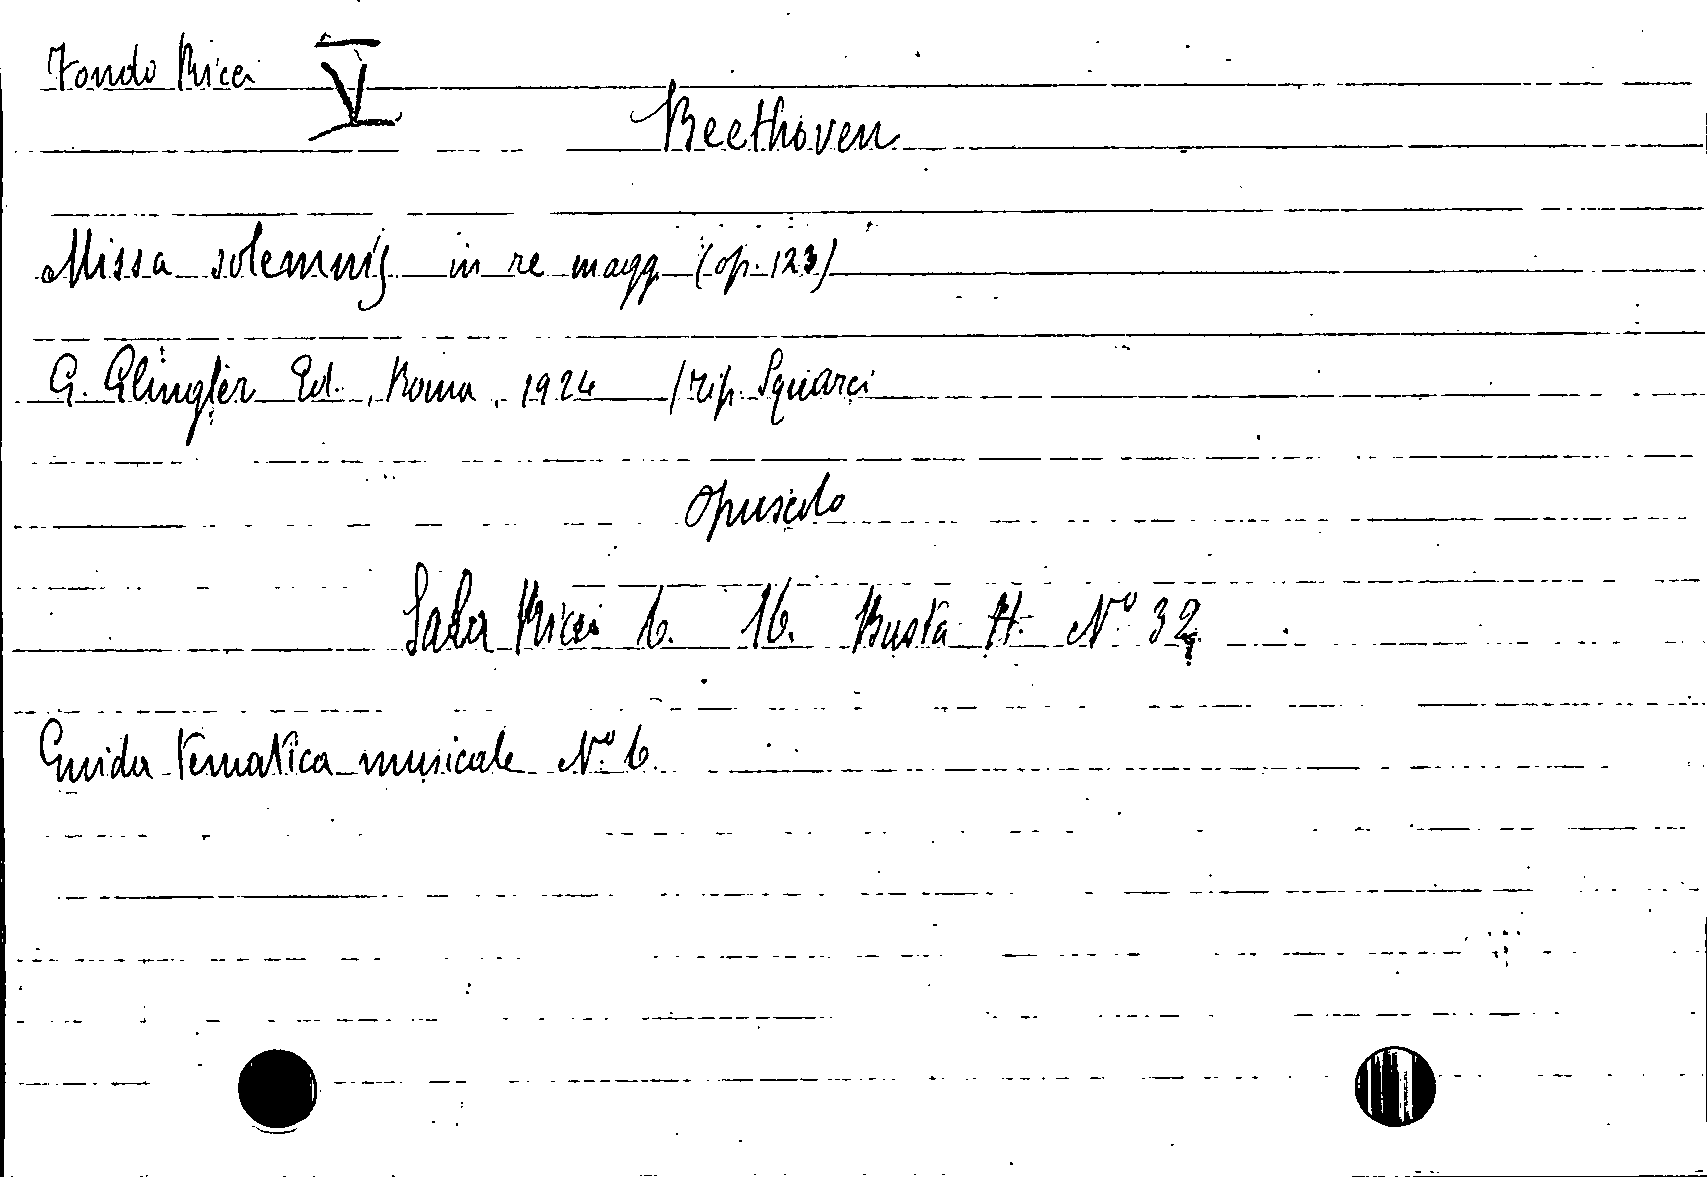 Fondo Ricci V
Beethoven
Missa solemnis in re magg. (op. 123)
G. Glingler Ed., Roma, 1924 / tip. Squarci
opuscolo
Sala Ricci 6. 16. Busta A. N° 32
Guida tematica musicale N° 6.